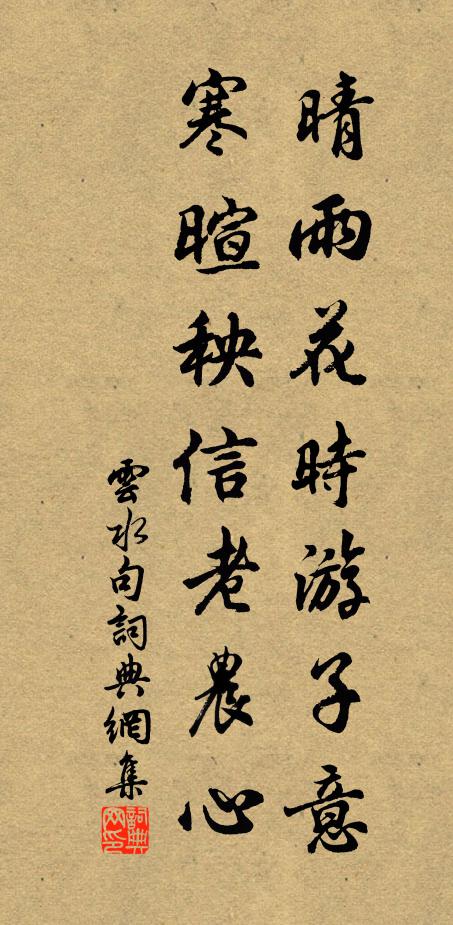 晴雨花時游子意
寒暄秧信老農心
雲水句詞典網集
詞典網印